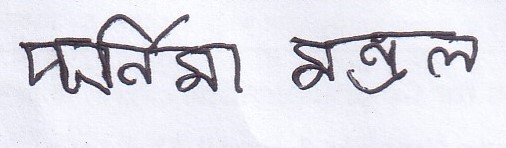 পূর্নিমা মন্ডল